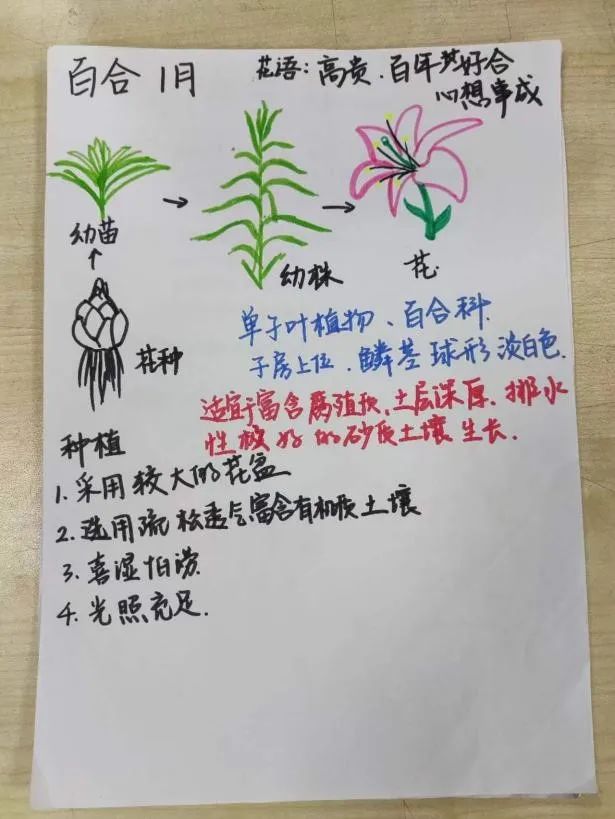 百合 1月
花语：高贵、百年好合
心想事成
幼苗
幼株
花
花种
单子叶植物、百合科
子房上位、鳞茎球形淡白色.
适宜于富含腐殖质、土层深厚、排水
性极好的砂质土壤生长.
种植
1.采用较大的花盆
2.选用疏松透气富含有机质土壤
3.喜湿怕涝
4.光照充足.